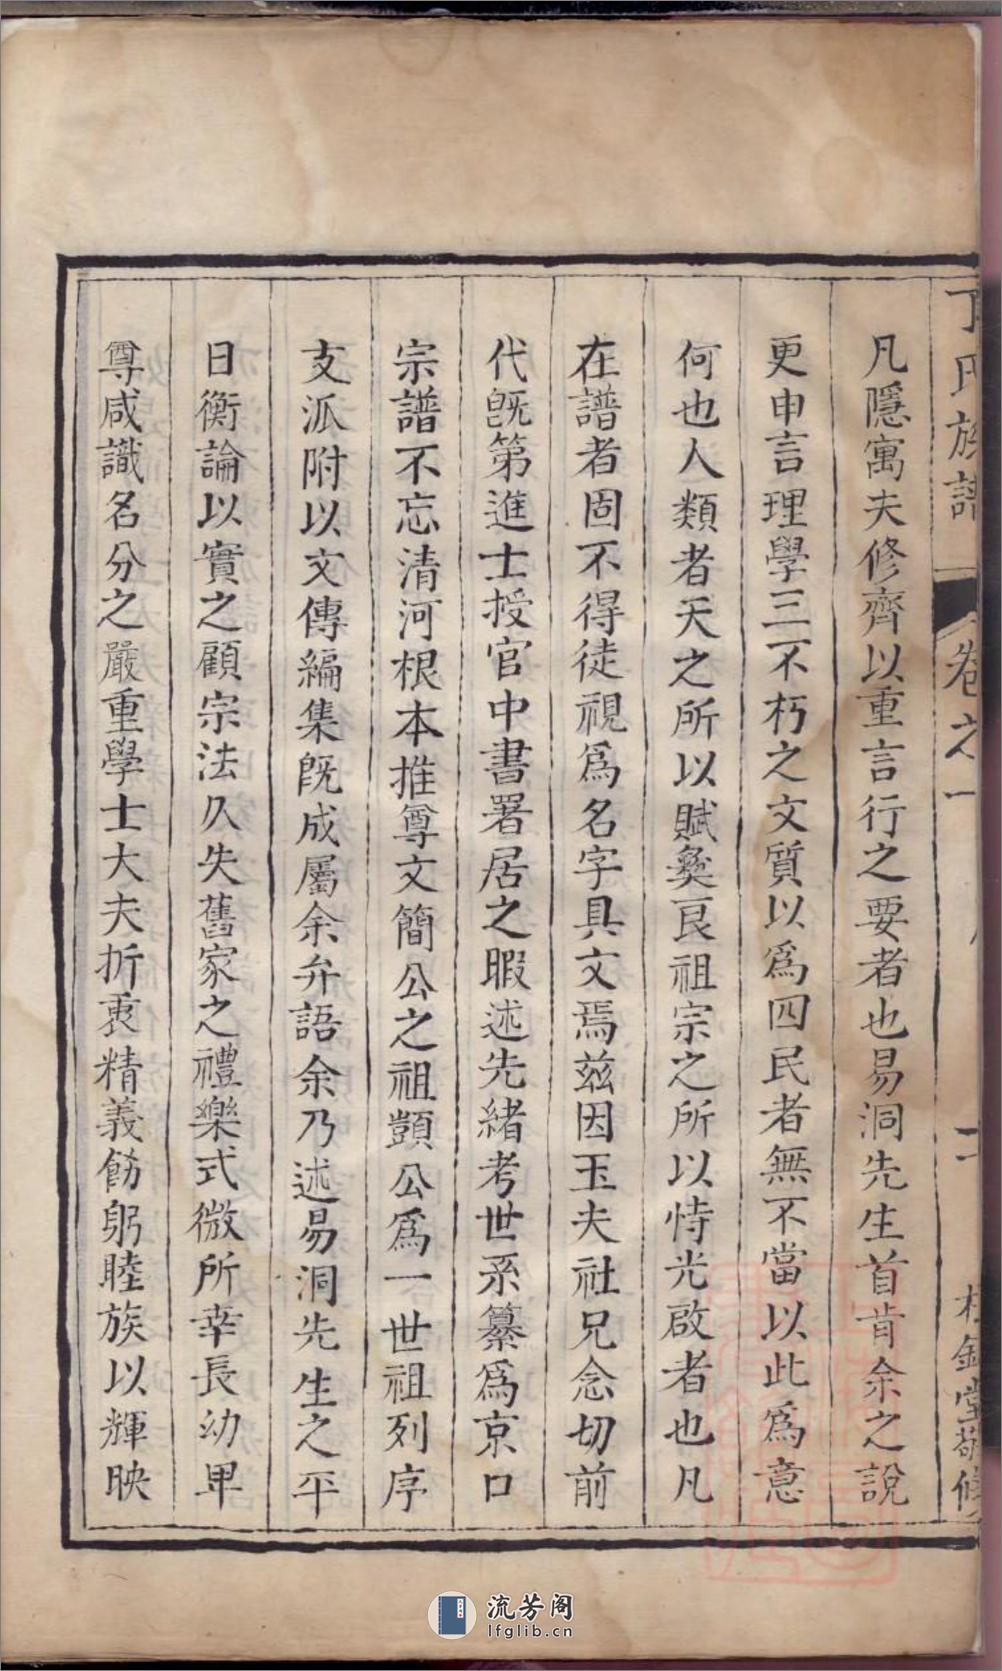 丁氏族譜 卷之一 二
凡隱寓夫修齊以重言行之要者也易洞先生首肯余之說
更申言理學三不朽之文質以爲四民者無不當以此爲意
何也人類者天之所以賦彝良祖宗之所以恃光啟者也凡
在譜者固不得徒視爲名字具文焉茲因玉夫社兄念切前
代旣第進士授官中書署居之暇述先緒考世系纂爲京口
宗譜不忘清河根本推尊文簡公之祖顗公爲一世祖列序
支派附以文傳編集旣成屬余弁語余乃述易洞先生之平
日衡論以實之顧宗法久失舊家之禮樂式微所幸長幼卑
尊咸識名分之嚴重學士大夫折衷精義飭躬睦族以輝映
流芳阁
lfglib.cn